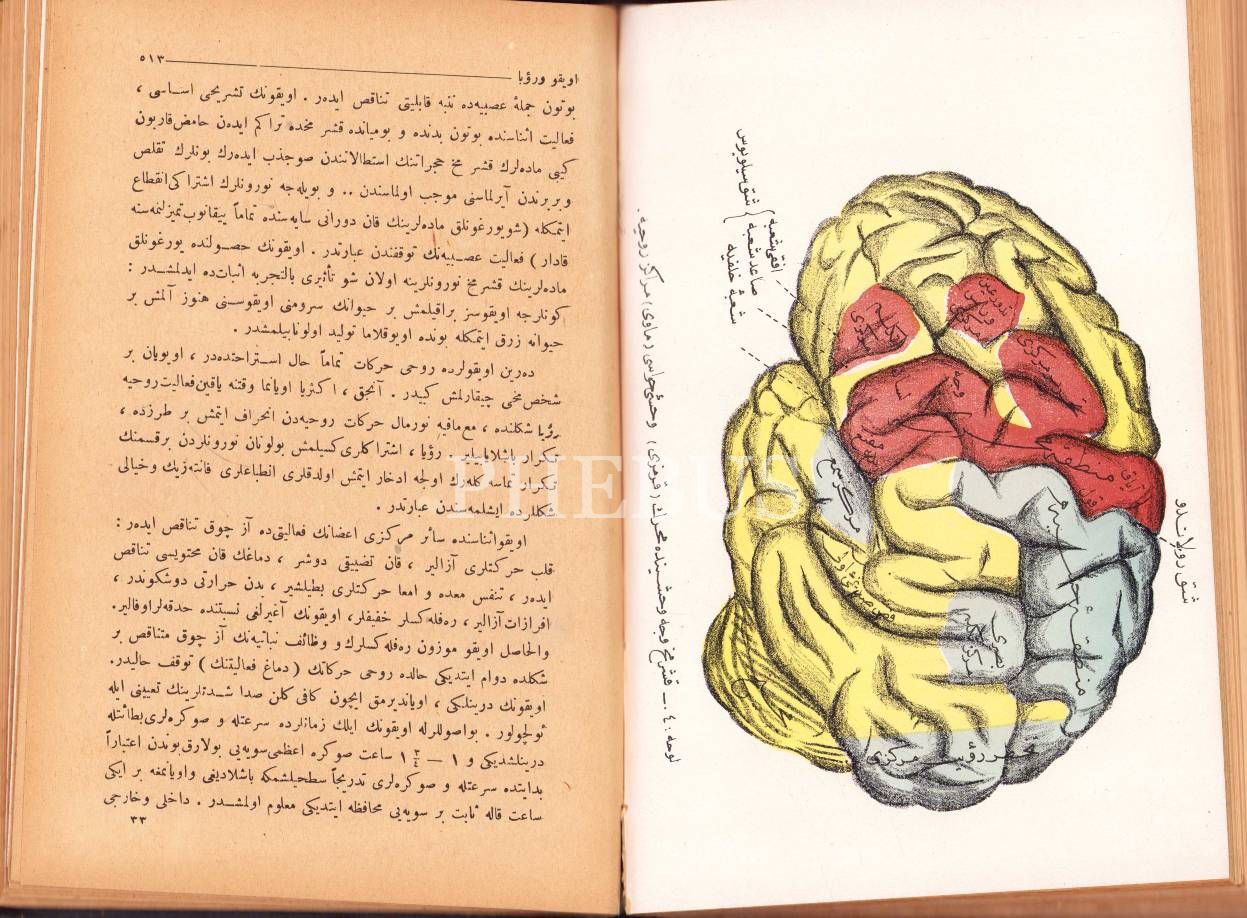 اويقو ورؤيا ٥١٣
بوتون جملهٔ عصبيه‌ده تنبه قابليتی تناقص ايدەر . اويقونك تشريحی اساسی ،
فعاليت اثناسنده بوتون بدنده و بوميانده قشر مخده تراكم ايدەن حامض‌قاربون
كبی ماده‌لرك قشر مخ حجراتنك استطالاتندن صوجذب ايدەرك بونلرك تقلص
و بربرندن آيرلماسنی موجب اولماسندن .. و بويله‌جه نورونلرك اشتراكی‌انقطاع
ايتمكله (شويورغونلق ماده‌لرينك قان دورانی سايه‌سنده تماماً ييقانوب‌تميزلنمه‌سنه
قادار ) فعاليت عصبيه‌نك توقفندن عبارتدر . اويقونك حصولنده يورغونلق
ماده‌لرينك قشرمخ نورونلرينه اولان شو تأثيری بالتجربه اثبات‌ده ايدلمشدر :
كونلرجه اويقوسز براقيلمش بر حيوانك سرومنی اويقوسنی هنوز آلمش بر
حيوانه زرق ايتمكله بونده اويوقلاما توليد اولونابيلمشدر .
دەرين اويقولرده روحی حركات تماماً حال استراحتده‌در ، اويويان بر
شخص‌مخی چيقارلمش كبيدر . آنجق ، اكثريا اويانما وقتنه ياقين‌فعاليت‌روحيه
رؤيا شكلنده ، مع‌مافيه نورمال حركات روحيه‌دن انحراف ايتمش بر طرزده ،
تكرار باشلايابيلير. رؤيا ، اشتراكلری‌كسيلمش بولونان نورونلردن برقسمنك
تكرار تماسه كله‌رك اولجه ادخار ايتمش اولدقلری انطباعلری فانته‌زيك وخيالی
شكللرده ايشلمه‌سندن عبارتدر .
اويقواثناسنده سائر مركزی اعضانك فعاليتی‌ده آز چوق تناقص ايدەر :
قلب حركتلری آزالير ، قان تضييقی دوشر ، دماغك قان محتويسی تناقص
ايدەر ، تنفس معده و امعا حركتلری بطيلشير ، بدن حرارتی دوشكوندر ،
افرازات‌آزالير ، ره‌فله‌كسلر خفيفلر، اويقونك آغيرلغی نسبتنده حدقه‌لراوفالير.
والحاصل اويقو موزون ره‌فله‌كسلرك و وظائف نباتيه‌نك آز چوق متناقص بر
شكلده دوام ايتديكی حالده روحی حركاتك (دماغ فعاليتنك) توقف حاليدر.
اويقونك درينلكی ، اوياندیرمق ايچون كافی كلن صدا شدتلرينك تعيينی ايله
ئولچولور . بواصوللرله اويقونك ايلك زمانلرده سرعتله و صوكره‌لری‌بطائتله
درينلشديكی و ١ — ١ ٣/٤ ساعت صوكره اعظمی‌سويه‌يی بولارق‌بوندن اعتباراً
بدايتده سرعتله و صوكره‌لری تدريجاً سطحيلشمكه باشلاديغی واويانمغه بر ايكی
ساعت قاله ثابت بر سويه‌يی محافظه ايتديكی معلوم اولمشدر . داخلی وخارجی
٣٣
شق سيلويوس
افقی شعبه
صاعد شعبه
شعبهٔ خلفيه
شق رولاندو
منطقهٔ
منطقهٔ حسيه
مركز شم
مركزی
بصری
مركز رؤيت
لوحه : ٤ ـ قشرمخ وجه وحشيسنده محرك (قرمزی) وحسی (ماوی) مراكز روحيه .
PHEBUS